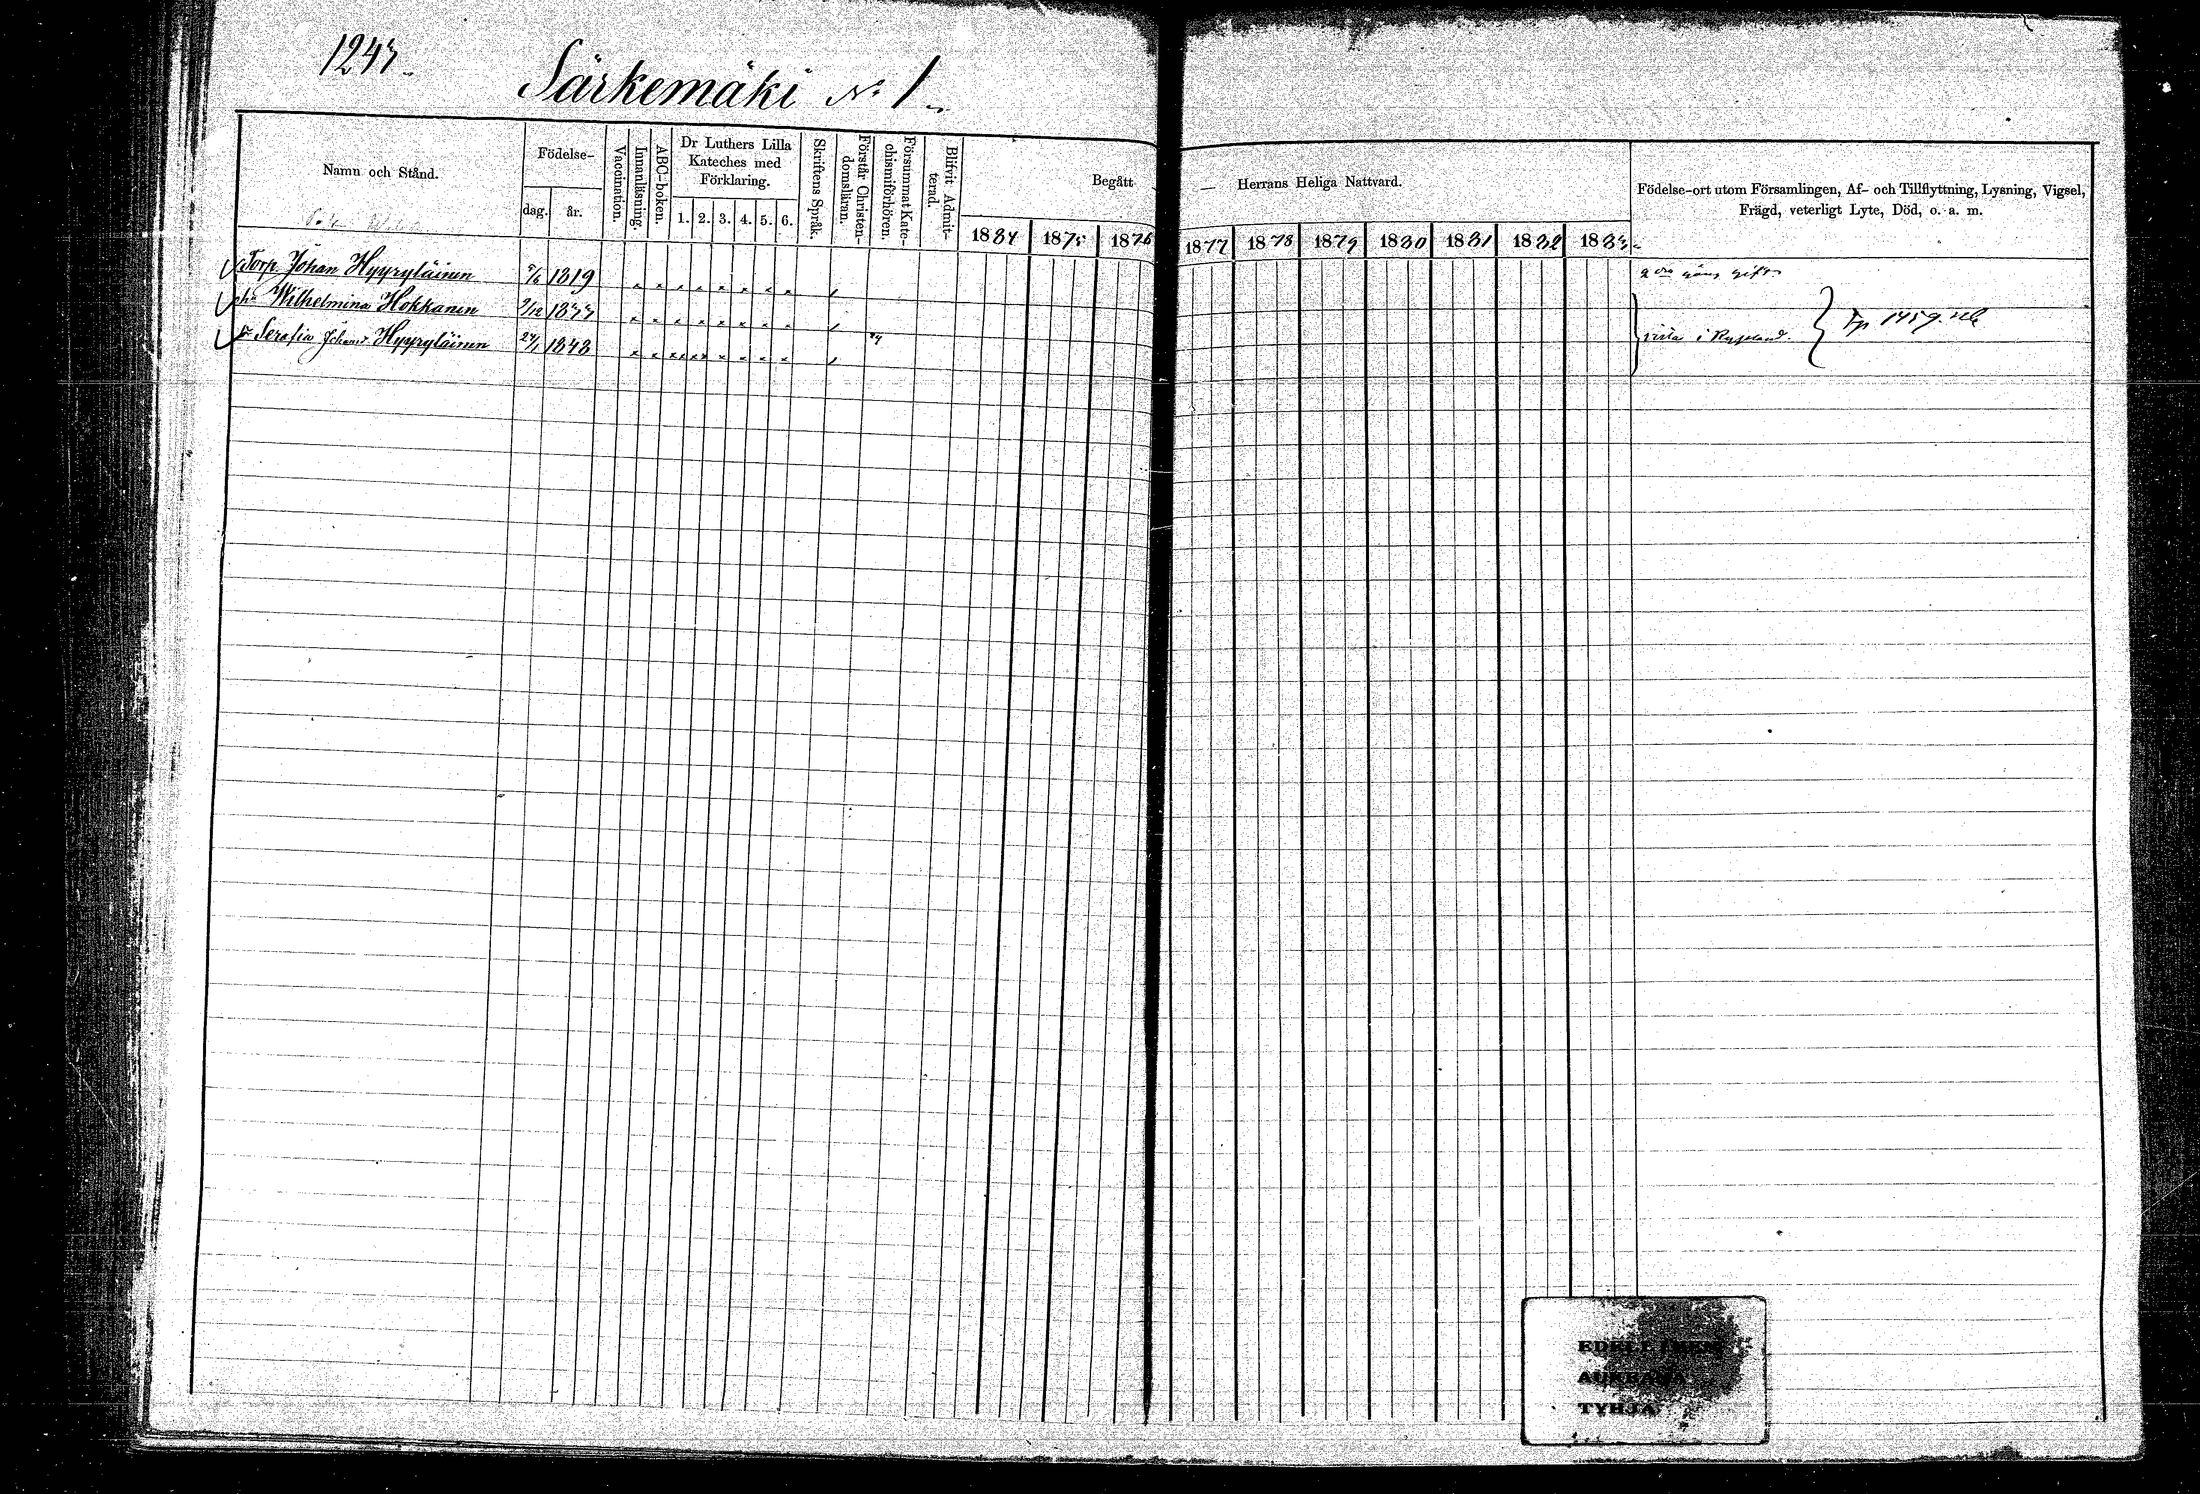 1243.
Särkemäki No 1.
Namn och Stånd.
Födelse-
dag.
år.
Vaccination.
Innanläsning.
ABC-boken.
Dr Luthers Lilla
Kateches med
Förklaring.
1. 2. 3. 4. 5. 6.
Skriftens Språk.
Förstår Christen-
domsläran.
Försummat Kate-
chismiförhören.
Blifvit Admit-
terad.
Begått — Herrans Heliga Nattvard.
1884 1875 1876 1877 1878 1879 1880 1881 1882 1883
Födelse-ort utom Församlingen, Af- och Tillflyttning, Lysning, Vigsel,
Frägd, veterligt Lyte, Död, o. a. m.
Torp. Johan Hyyryläinen 1819 gång gift
Wilhelmina Hokkanen 9/12 1833
Serafia Johansd Hyyryläinen 24/1 1848 vista i Ryssland.
1459.
EDELLINEN
AUKEAMA
TYHJÄ